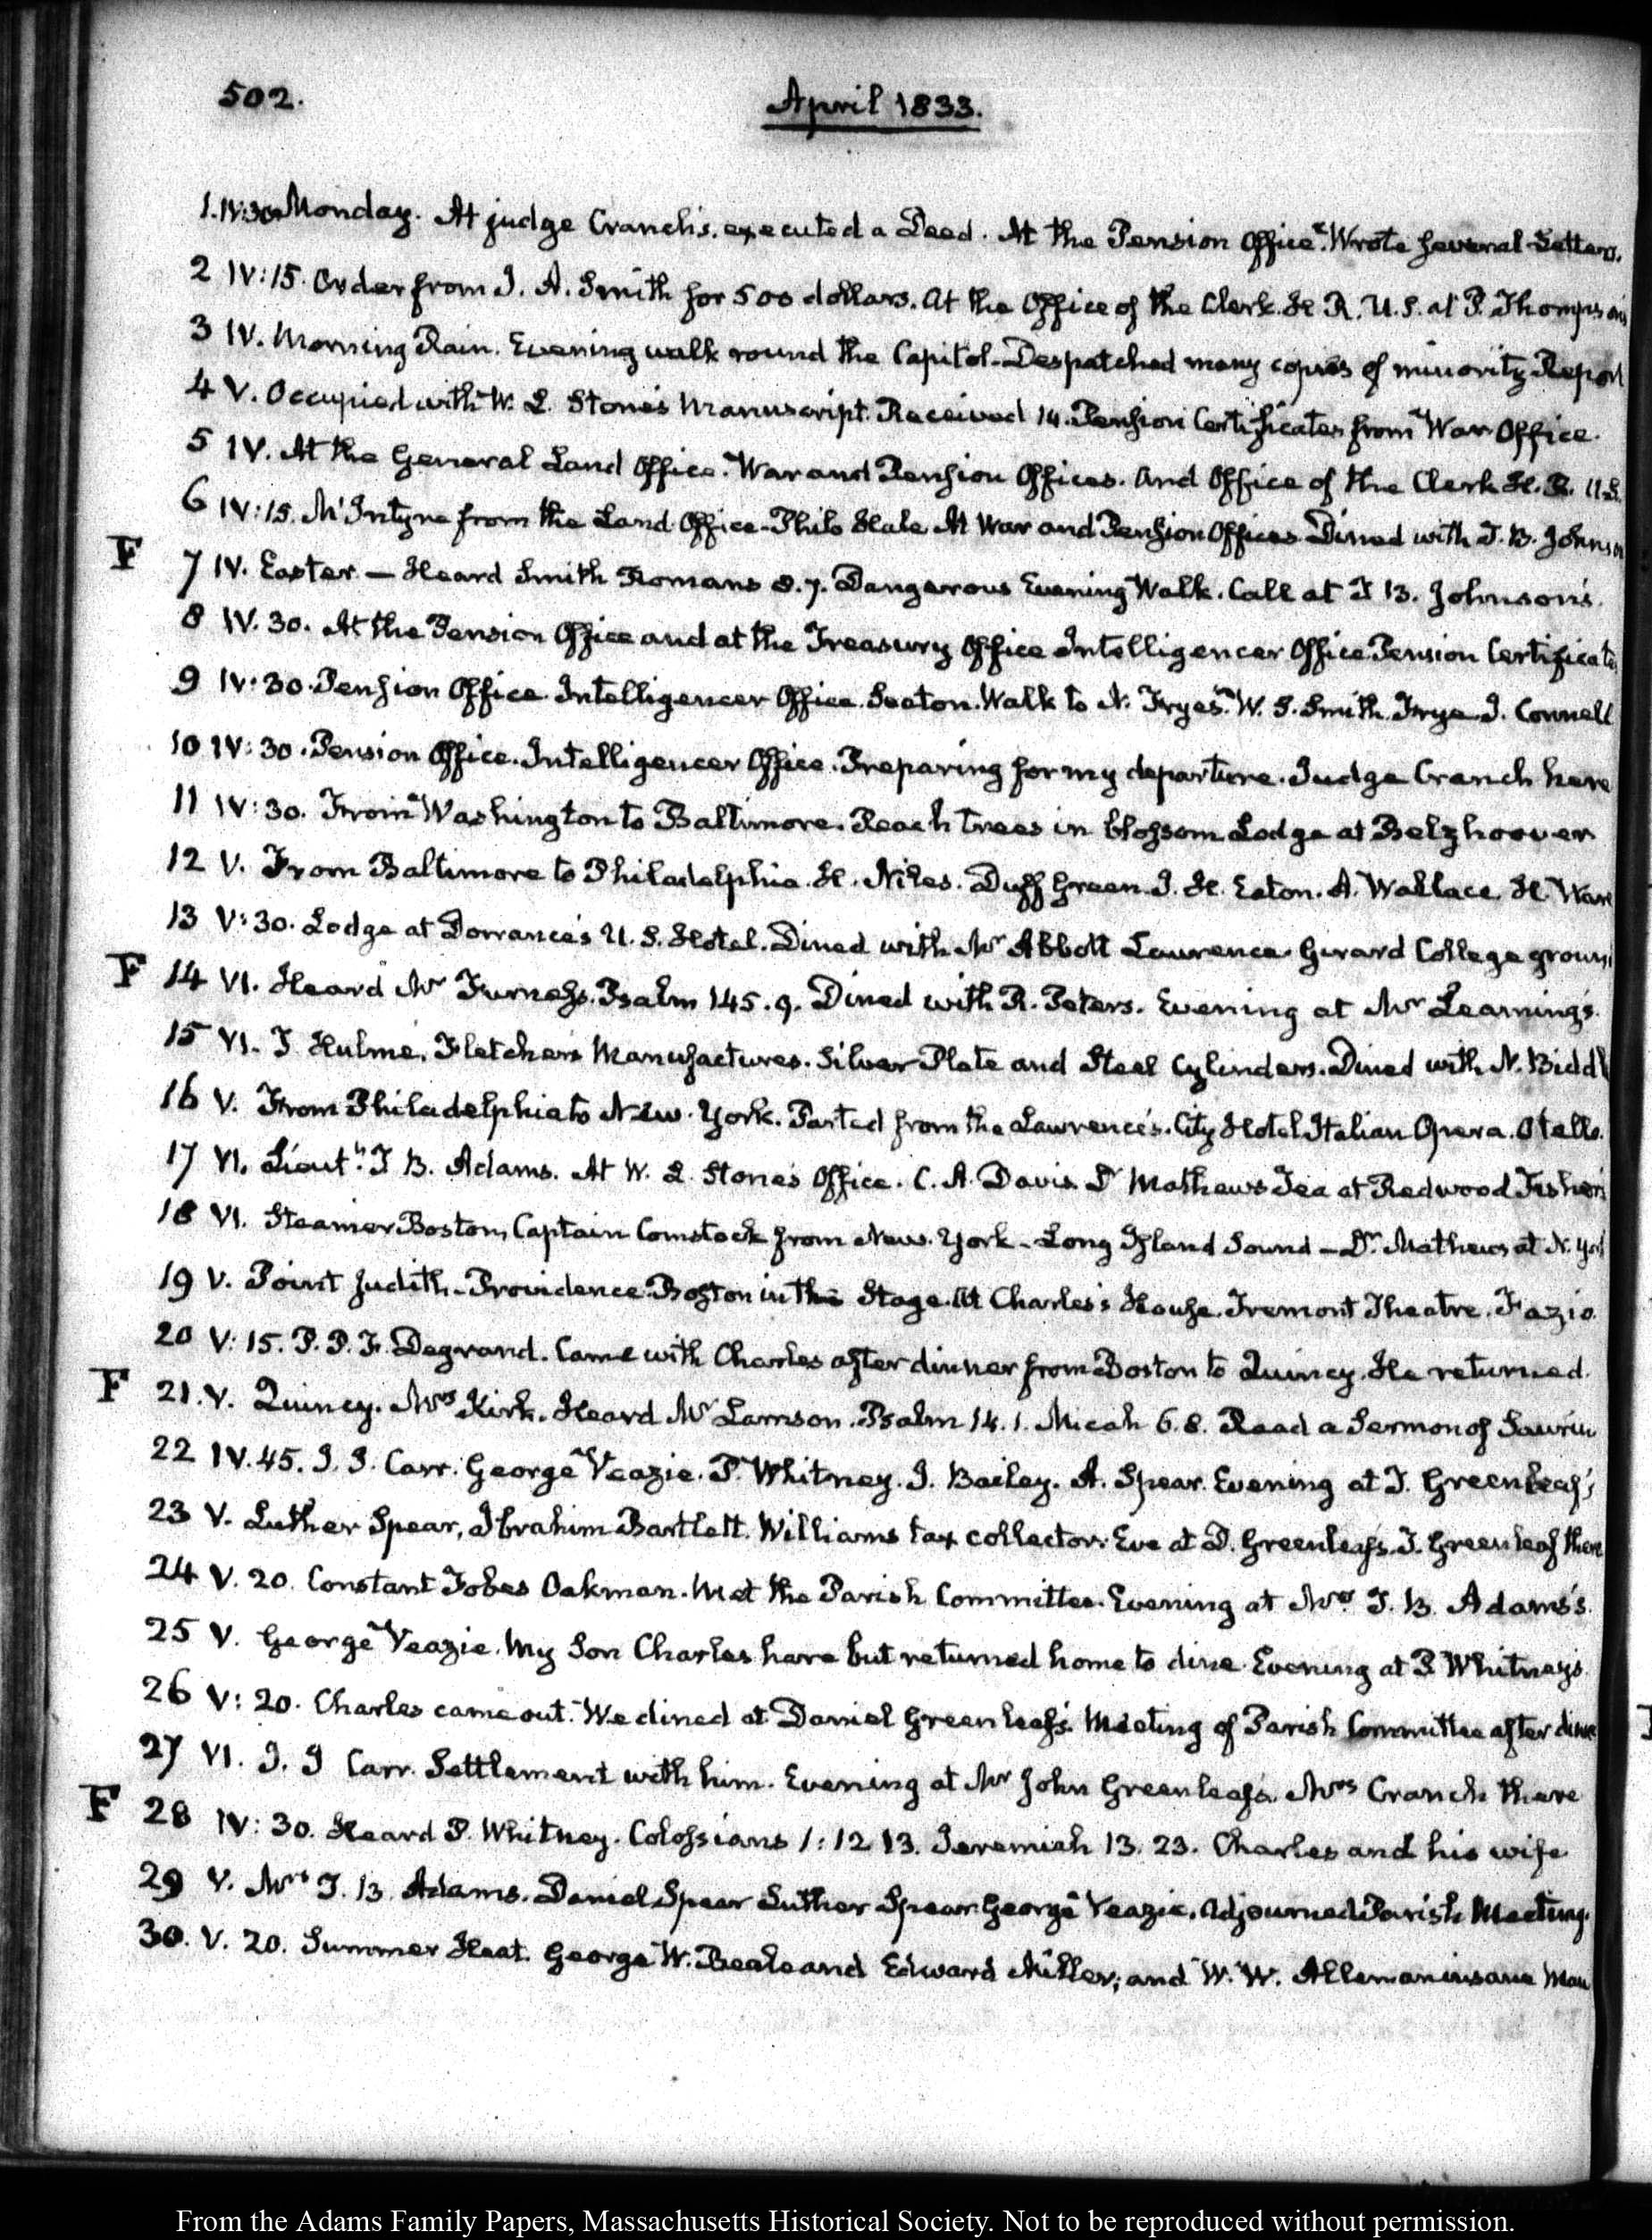 502.
April 1833.
1. IV:30 Monday. At judge Cranch's. executed a Deed. At the Pension Office. Wrote several Letters.
2 IV:15. Order from J. A. Smith for 500 dollars. At the Office of the Clerk. H. R. U.S. at P. Thompson's
3 IV. Morning Rain. Evening walk round the Capitol. Despatched many copies of minority Report
4 V. Occupied with W. L. Stone's Manuscript. Received 14. Pension Certificates from War Office.
5 IV. At the General Land Office. War and Pension Offices. And Office of the Clerk H. R. U.S.
6 IV:15. McIntyre from the Land Office. Philo Hale. At War and Pension Offices Dined with T. B. Johnson
F 7 IV. Easter — Heard Smith Romans 8. 7. Dangerous Evening Walk. Call at T B. Johnson's.
8 IV. 30. At the Pension Office and at the Treasury Office Intelligencer Office Pension Certificates
9 IV:30. Pension Office. Intelligencer Office. Seaton. Walk to N. Frye's. W. S. Smith. Frye J. Connell
10 IV:30. Pension Office. Intelligencer Office. Preparing for my departure. Judge Cranch here
11 IV:30. From Washington to Baltimore. Peach trees in blossom Lodge at Belzhoover
12 V. From Baltimore to Philadelphia. H. Niles. Duff Green. J. H. Eaton. A. Wallace. H. Ware
13 V:30. Lodge at Dorrance's U. S. Hotel. Dined with Mr Abbott Lawrence. Girard College ground
F 14 VI. Heard Mr Furness. Psalm 145. 9. Dined with R. Peters. Evening at Mr Leaming's.
15 VI. T Hulme. Fletcher's Manufactures. Silver Plate and Steel Cylinders. Dined with N. Biddle
16 V. From Philadelphia to New-York. Parted from the Lawrence's. City Hotel Italian Opera. Otello.
17 VI. Lieutt. T B. Adams. At W. L. Stone's Office. C. A. Davis. Dr Mathews Tea at Redwood Fisher's
18 VI. Steamer Boston, Captain Comstock from New-York - Long Island Sound - Dr. Mathews at N. York
19 V. Point Judith. Providence. Boston in the Stage. At Charles's House. Tremont Theatre. Fazio.
20 V:15. P. P. F. Degrand. Came with Charles after dinner from Boston to Quincy. He returned.
F 21. V. Quincy. Mrs Kirk. Heard Mr Lamson. Psalm 14. 1. Micah 6. 8. Read a Sermon of Saurin
22 IV. 45. J. J. Carr. George Veazie. P. Whitney. J. Bailey. A. Spear. Evening at T. Greenleaf's
23 V. Luther Spear, Ibrahim Bartlett. Williams tax collector. Eve at D. Greenleaf's. T. Greenleaf there
24 V. 20. Constant Fobes Oakman. Met the Parish Committee. Evening at Mrs. T. B. Adams's.
25 V. George Veazie. My Son Charles here but returned home to dine. Evening at P. Whitney's.
26 V:20. Charles came out. We dined at Daniel Greenleaf's. Meeting of Parish Committee after dinner
27 VI. J. J Carr. Settlement with him. Evening at Mr John Greenleaf's. Mrs Cranch there
F 28 IV:30. Heard P. Whitney. Colossians 1:12 13. Jeremiah 13. 23. Charles and his wife
29 V. Mrs T. B. Adams. Daniel Spear Luther Spear. George Veazie. Adjourned Parish Meeting.
30. V. 20. Summer Heat. George W. Beale and Edward Miller; and W. W. Alleman insane Man
From the Adams Family Papers, Massachusetts Historical Society. Not to be reproduced without permission.